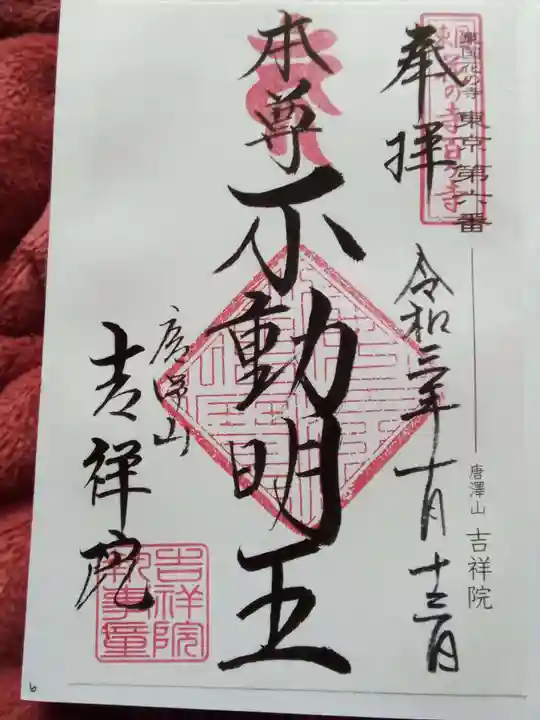 東国花の寺 東京第六番
唐澤山 吉祥院
奉拝
令和三年 十月 十三日
本尊 不動明王
吉祥院
吉祥院
6